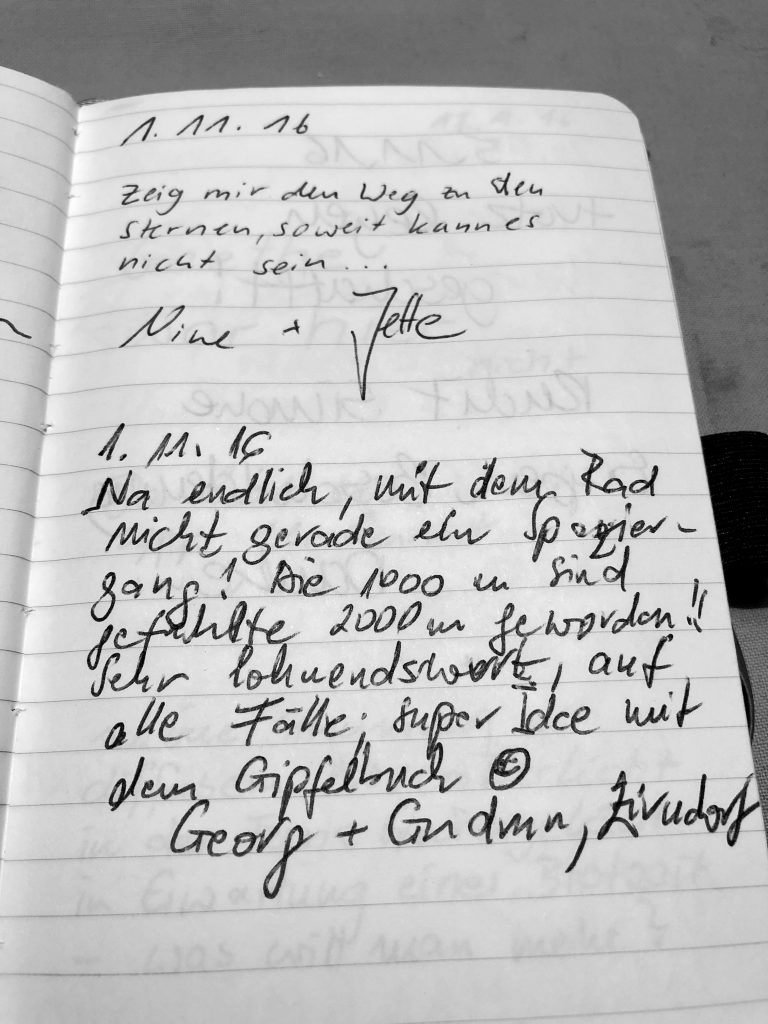 1. 11. 16
Zeig mir den Weg zu den
Sternen, soweit kann es
nicht sein...
Nine + Jette
1. 11. 16
Na endlich, mit dem Rad
nicht gerade ein Spazier-
gang! Die 1000 m sind
gefühlte 2000 m geworden!!
Sehr lohnendswert, auf
alle Fälle; super Idee mit
dem Gipfelbuch ☺
Georg + Gudrun, Zirndorf